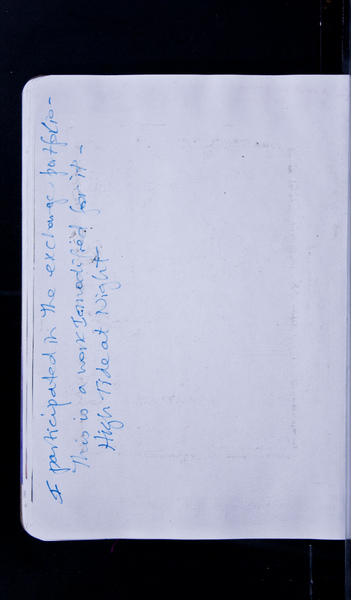 I participated in the exchange portfolio -
This is a work I modified for it -
High Tide at Night -